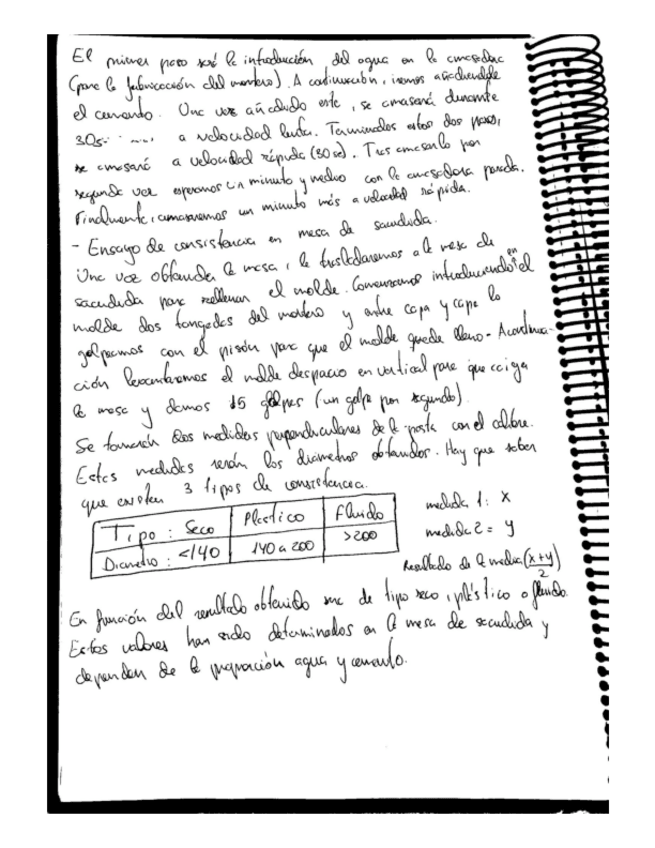 El primer paso será la introducción del agua en la amasadora
(para la fabricación del mortero). A continuación, iremos añadiendole
el cemento. Una vez añadido este, se amasará durante
30s a velocidad lenta. Terminados estos dos pasos,
se amasará a velocidad rápida (30se). Tras amasarlo por
segunda vez esperamos un minuto y medio con la amasadora parada.
Finalmente, amasaremos un minuto más a velocidad rápida.
- Ensayo de consistencia en mesa de sacudida.
Una vez obtenida la masa, la trasladaremos a la mesa de
sacudida para rellenar el molde. Comenzamos introduciendo en el
molde dos tongadas del mortero y entre capa y capa lo
golpeamos con el pisón para que el molde quede lleno. A continua-
ción levantaremos el molde despacio en vertical para que caiga
la masa y damos 15 golpes (un golpe por segundo).
Se tomarán dos medidas perpendiculares de la pasta con el calibre.
Estas medidas serán los diámetros obtenidos. Hay que saber
que existen 3 tipos de consistencia.
Tipo: Seco Plastico Fluido
Diametro: <140 140 a 200 >200
medida 1: x
medida 2 = y
Resultado de la media (x+y)/2
En función del resultado obtenido será de tipo seco, plástico o fluido.
Estos valores han sido determinados en la mesa de sacudida y
dependen de la proporción agua y cemento.